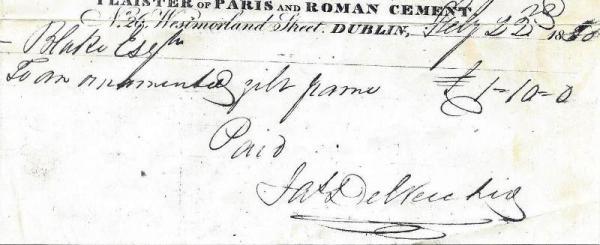 PLAISTER OF PARIS AND ROMAN CEMENT
N. 26, Westmorland Street, DUBLIN, 22 18
- Blake Esqr
To an ornamented gilt frame £1-10-0
Paid
Jas Del Vecchio